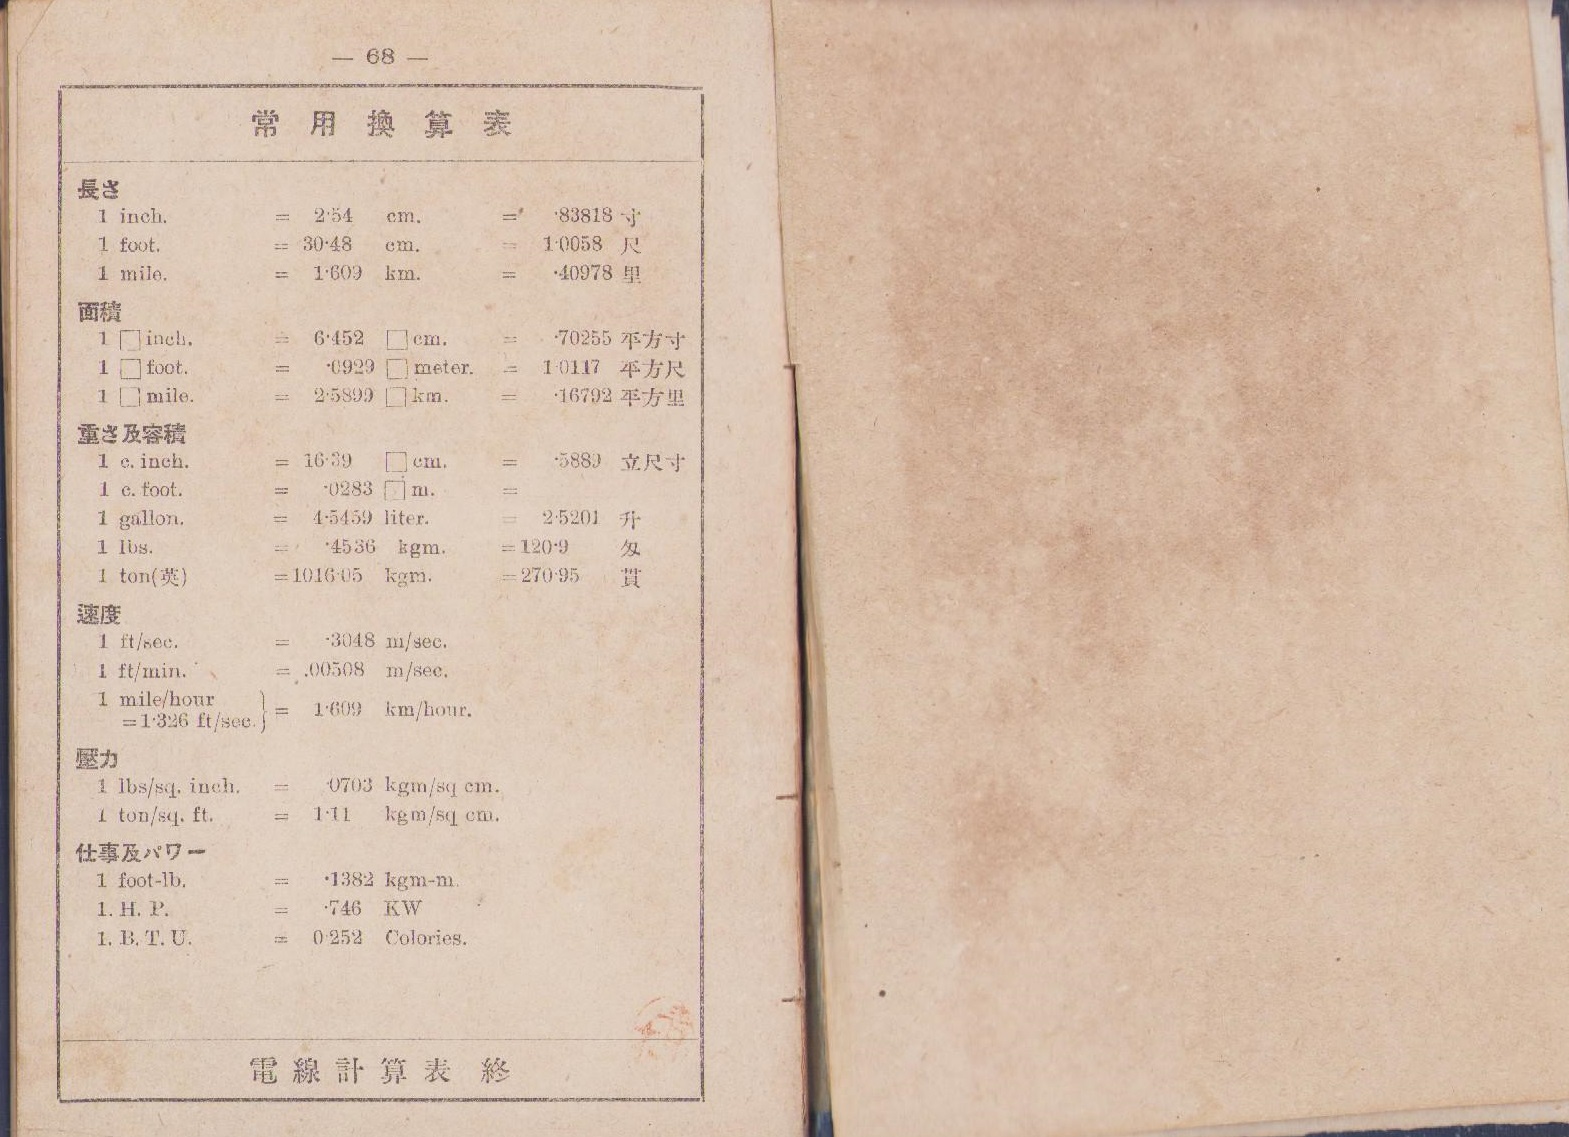 — 68 —
常用換算表
長さ
1 inch. = 2·54 cm. = ·83818 寸
1 foot. = 30·48 cm. = 1·0058 尺
1 mile. = 1·609 km. = ·40978 里
面積
1 □ inch. = 6·452 □ cm. = ·70255 平方寸
1 □ foot. = ·0929 □ meter. = 1·0117 平方尺
1 □ mile. = 2·5899 □ km. = ·16792 平方里
重さ及容積
1 c. inch. = 16·39 □ cm. = ·5889 立尺寸
1 c. foot. = ·0283 □ m. =
1 gallon. = 4·5459 liter. = 2·5201 升
1 lbs. = ·4536 kgm. = 120·9 匁
1 ton(英) = 1016·05 kgm. = 270·95 貫
速度
1 ft/sec. = ·3048 m/sec.
1 ft/min. = .00508 m/sec.
1 mile/hour
=1·326 ft/sec.} = 1·609 km/hour.
壓力
1 lbs/sq. inch. = ·0703 kgm/sq cm.
1 ton/sq. ft. = 1·11 kgm/sq cm.
仕事及パワー
1 foot-lb. = ·1382 kgm-m.
1. H. P. = ·746 KW
1. B. T. U. = 0·252 Colories.
電線計算表 終